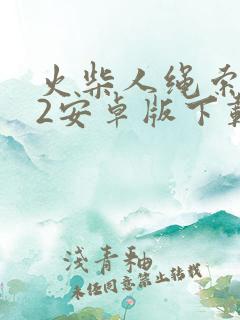 火柴人绳索
2安卓版下载
浅青釉
未经同意禁止转载